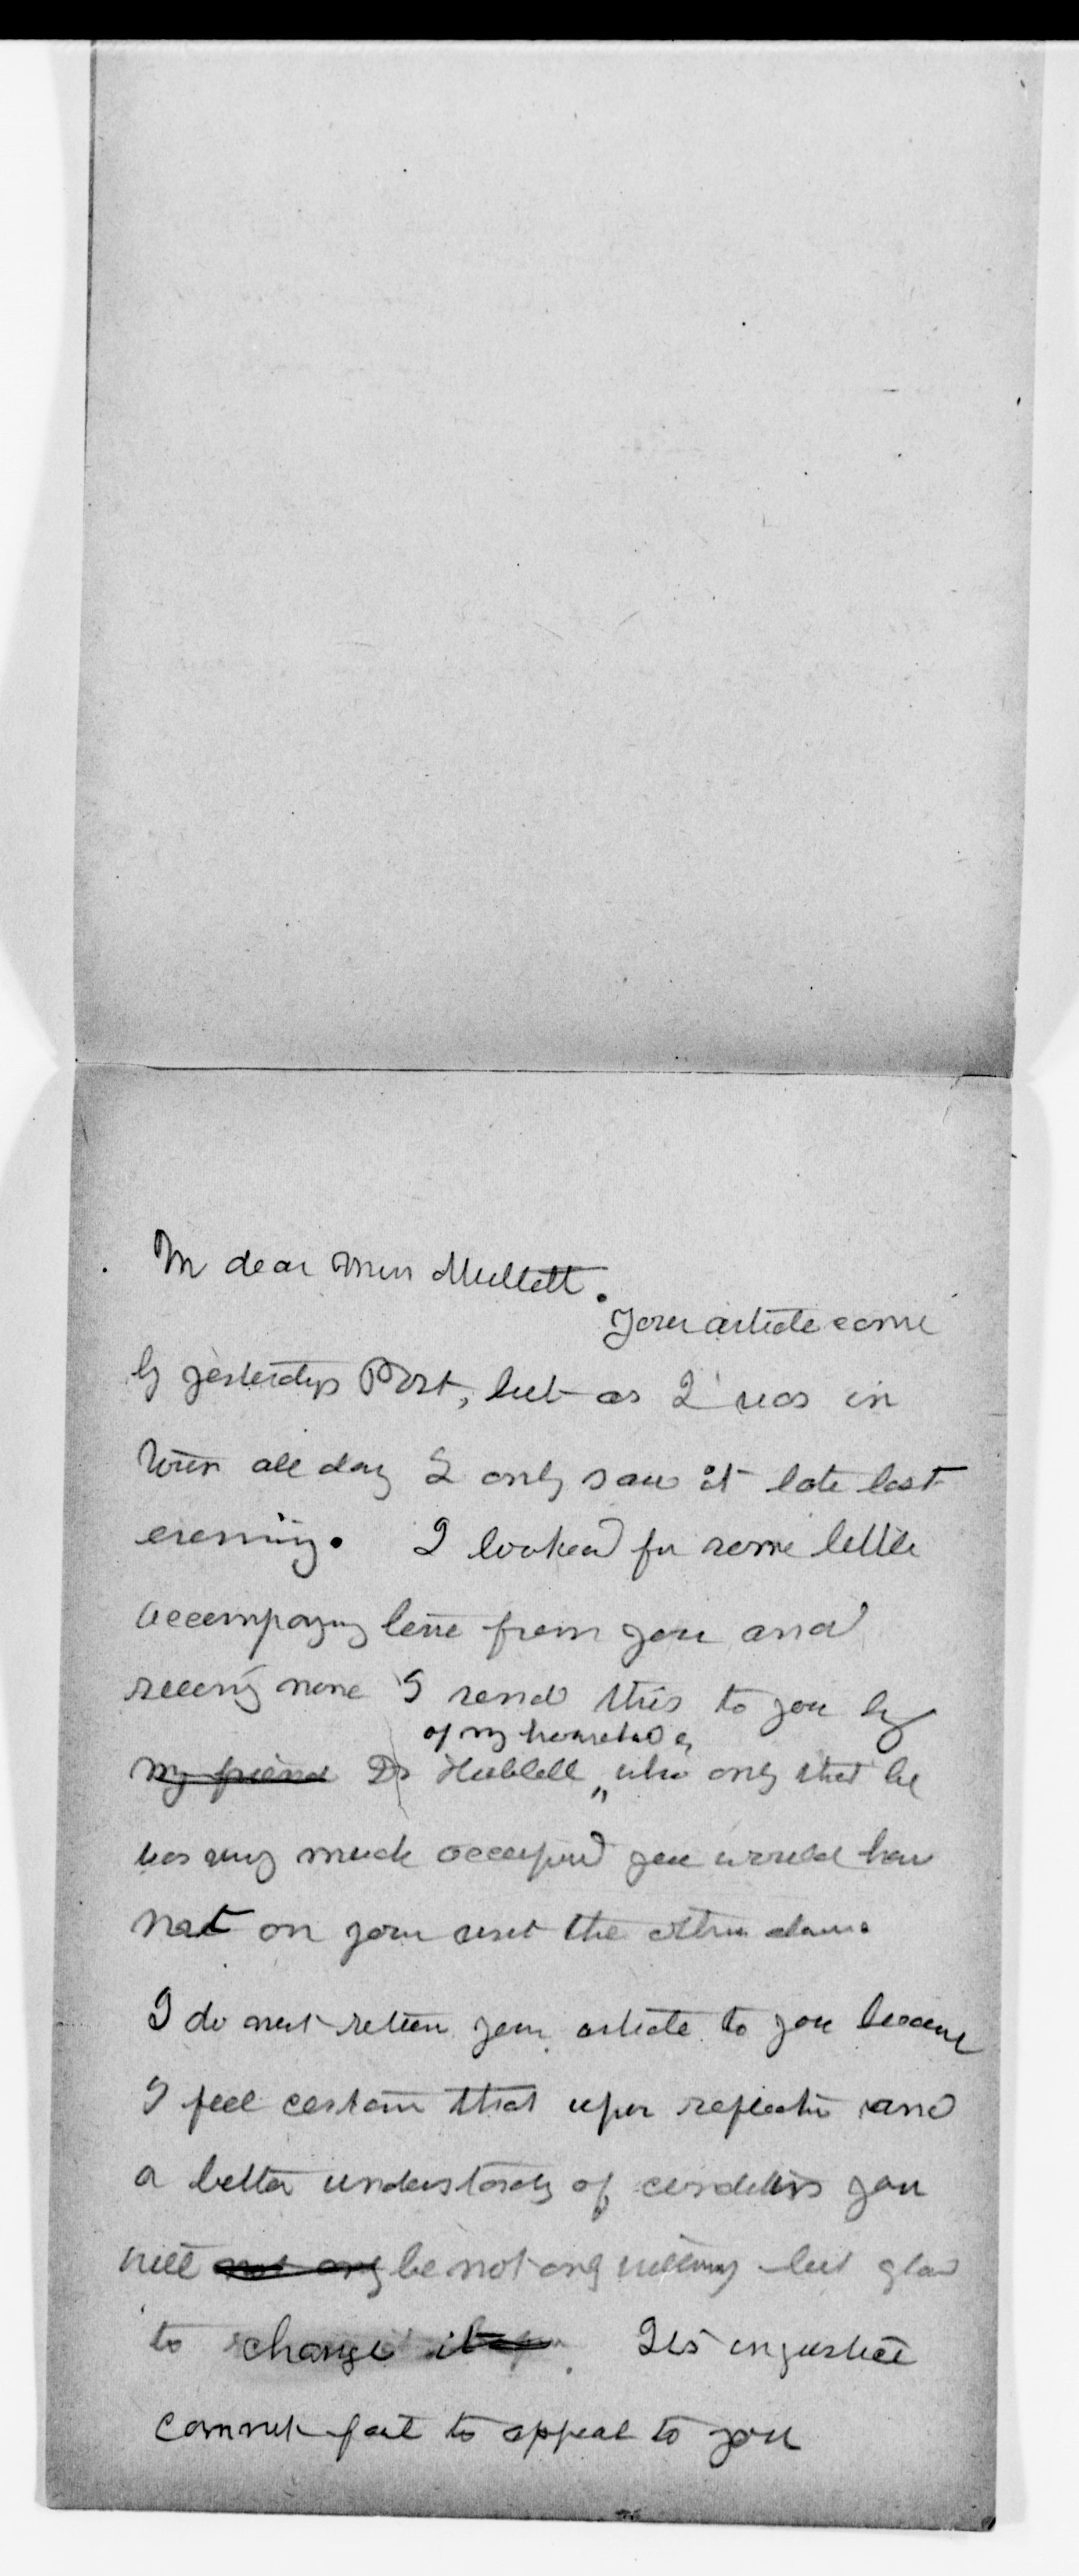 My dear Miss Mullett.
Your article came
by yesterdys Post, but as I was in
town all day I only saw it late last
evening. I looked for some little
accompanying line from you and
seeing none I send this to you by
of my household
my friend Dr Hubbell, who only that he
was very much occupied you would have
met on your visit the other day.
I do not return your article to you because
I feel certain that upon reflection and
a better understanding of conditions you
will not only be not only willing but glad
to change it. Its injustice
cannot fail to appeal to you